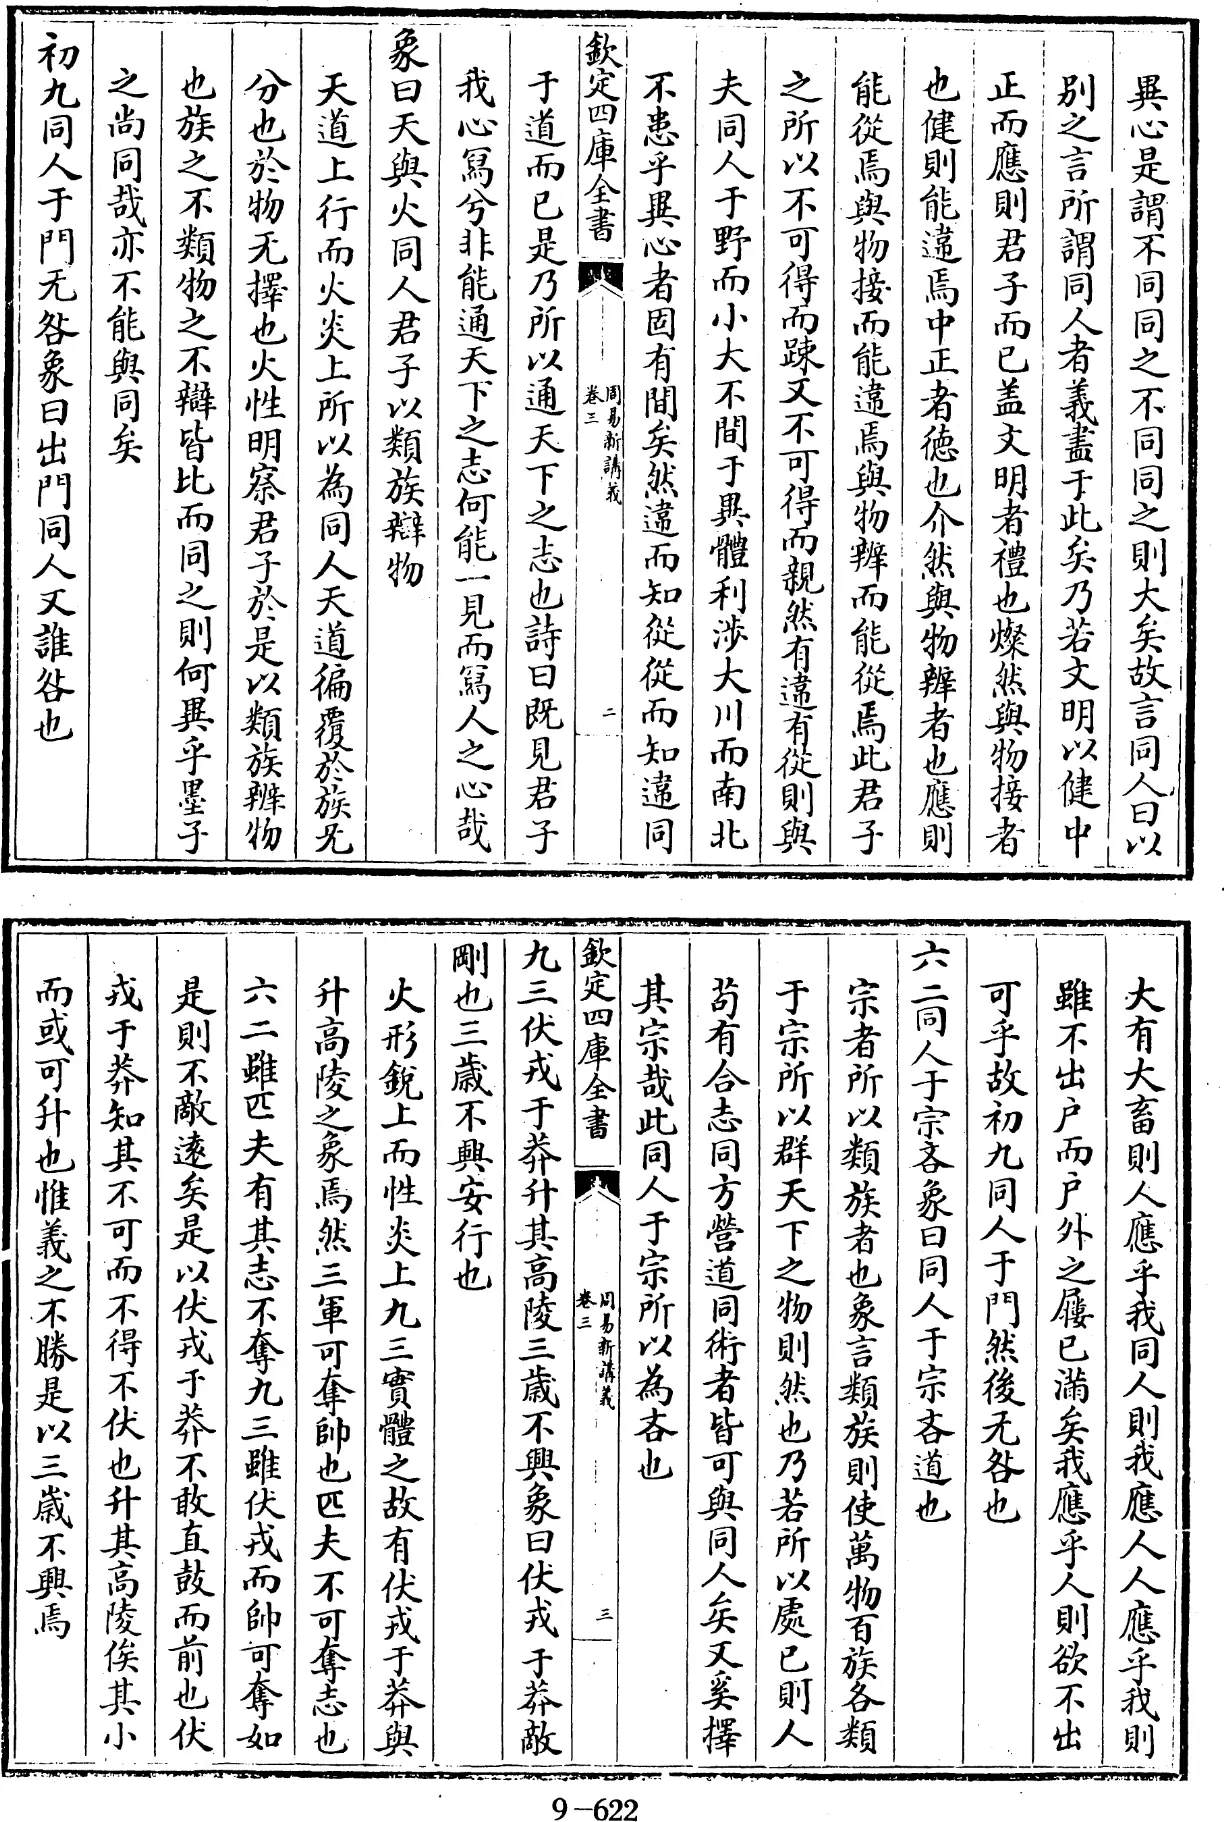 異心是謂不同同之不同同之則大矣故言同人曰以
別之言所謂同人者義盡于此矣乃若文明以健中
正而應則君子而已盖文明者禮也燦然與物接者
也健則能違焉中正者德也介然與物辨者也應則
能從焉與物接而能違焉與物辨而能從焉此君子
之所以不可得而踈又不可得而親然有違有從則與
夫同人于野而小大不間于異體利涉大川而南北
不患乎異心者固有間矣然違而知從從而知違同
欽定四庫全書
周易新講義
卷三
二
于道而已是乃所以通天下之志也詩曰既見君子
我心寫兮非能通天下之志何能一見而寫人之心哉
象曰天與火同人君子以類族辯物
天道上行而火炎上所以為同人天道徧覆於族无
分也於物无擇也火性明察君子於是以類族辨物
也族之不類物之不辯皆比而同之則何異乎墨子
之尚同哉亦不能與同矣
初九同人于門无咎象曰出門同人又誰咎也
大有大畜則人應乎我同人則我應人人應乎我則
雖不出户而户外之屨已滿矣我應乎人則欲不出
可乎故初九同人于門然後无咎也
六二同人于宗吝象曰同人于宗吝道也
宗者所以類族者也象言類族則使萬物百族各類
于宗所以群天下之物則然也乃若所以處已則人
茍有合志同方營道同術者皆可與同人矣又奚擇
其宗哉此同人于宗所以為吝也
欽定四庫全書
周易新講義
卷三
三
九三伏戎于莽升其高陵三歲不興象曰伏戎于莽敵
剛也三歲不興安行也
火形銳上而性炎上九三實體之故有伏戎于莽與
升高陵之象焉然三軍可奪帥也匹夫不可奪志也
六二雖匹夫有其志不奪九三雖伏戎而帥可奪如
是則不敵遠矣是以伏戎于莽不敢直鼓而前也伏
戎于莽知其不可而不得不伏也升其高陵俟其小
而或可升也惟義之不勝是以三歲不興焉
9-622